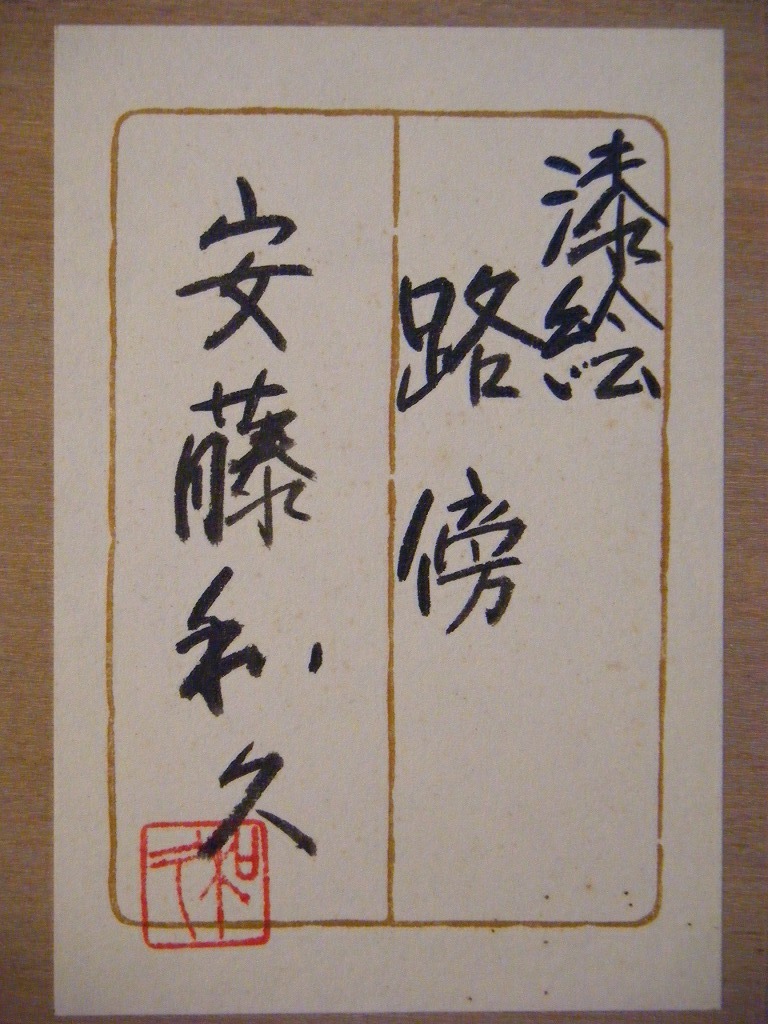 漆絵
路傍
安藤和久